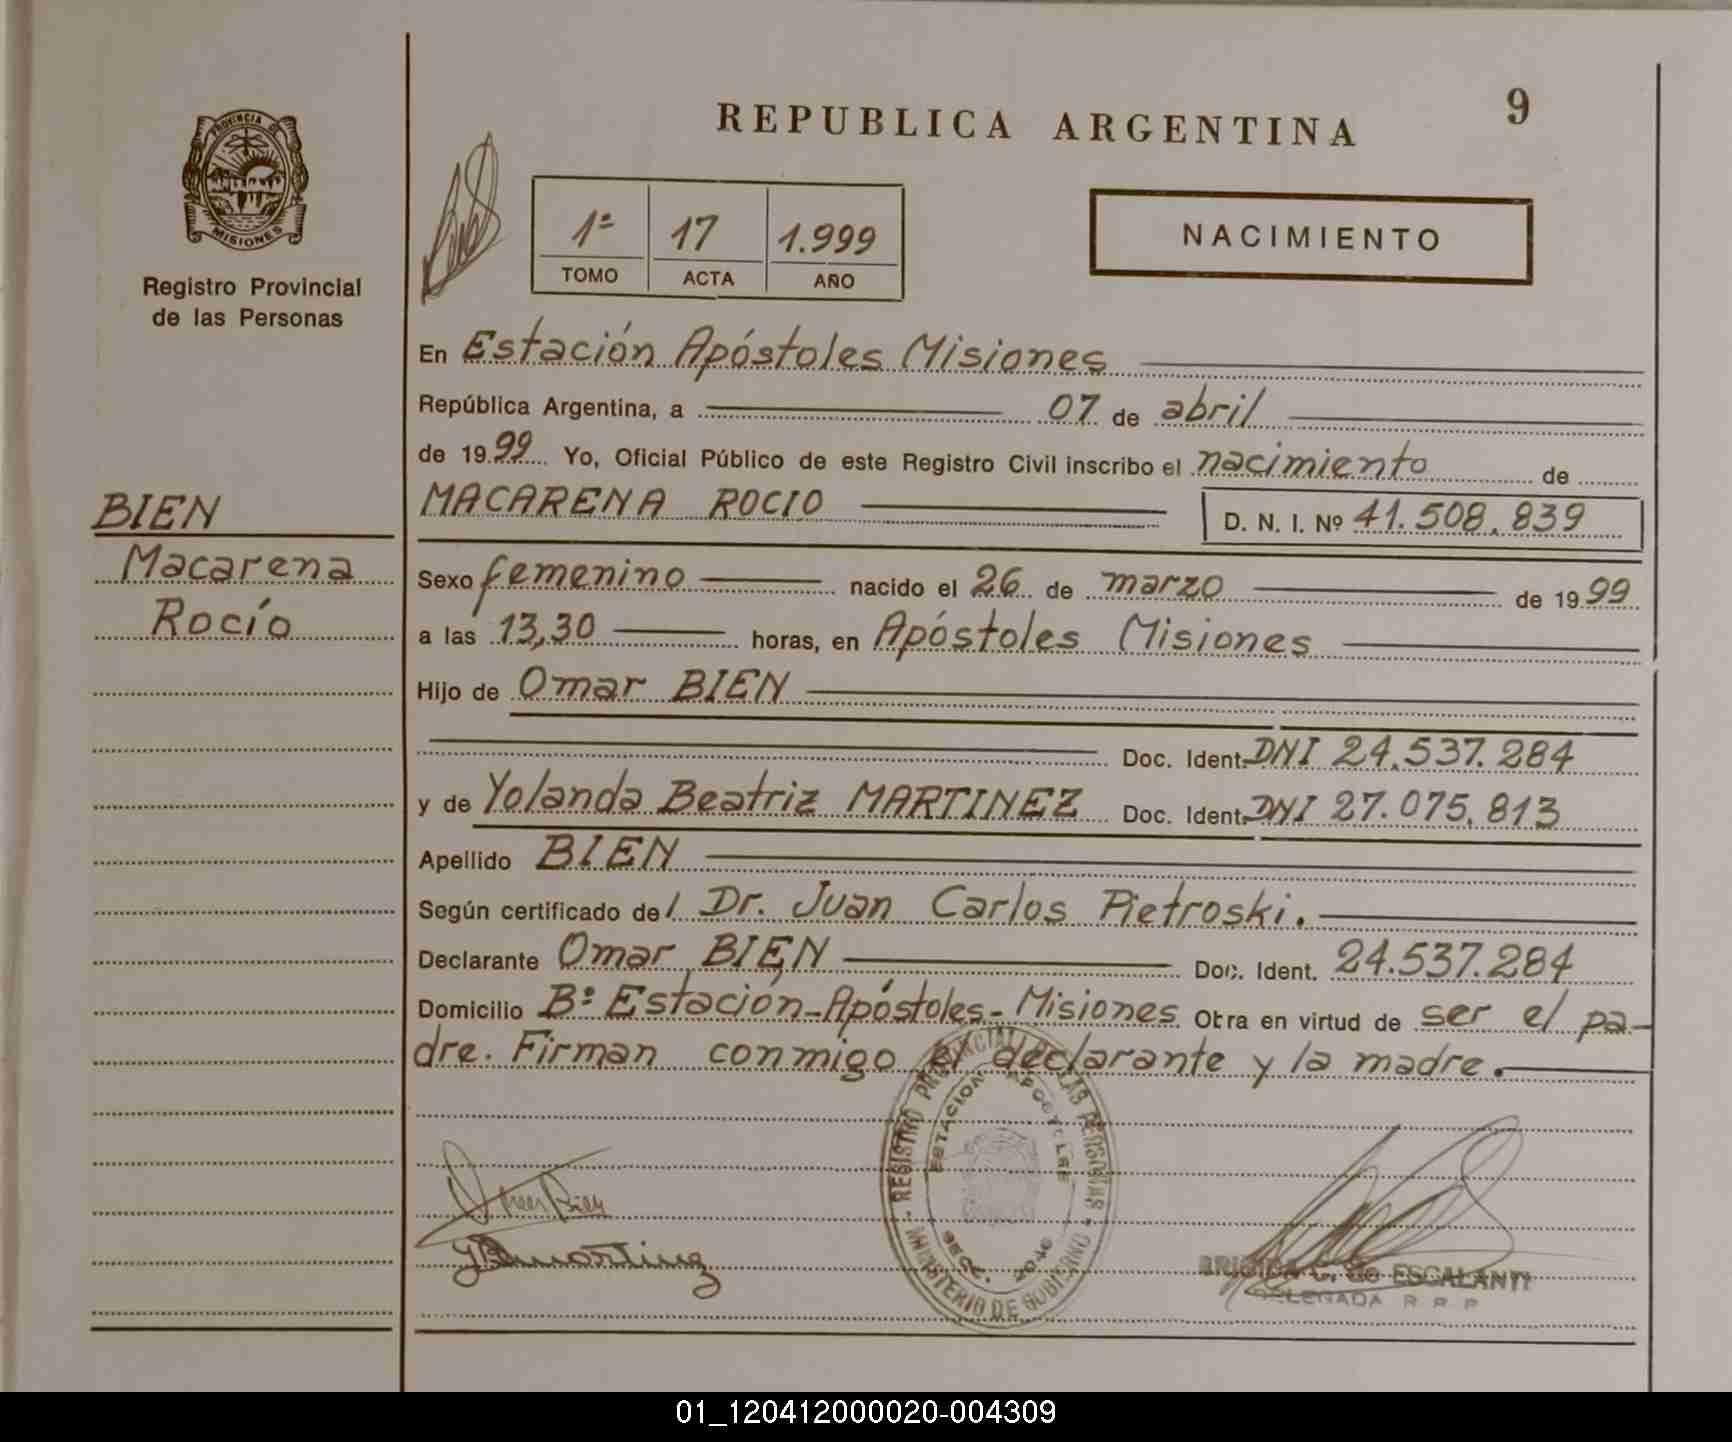 REPUBLICA ARGENTINA
9
PROVINCIA DE
MISIONES
Registro Provincial
de las Personas
1ª 17 1.999
TOMO ACTA AÑO
NACIMIENTO
En Estación Apóstoles Misiones
República Argentina, a 07 de abril
de 1999 Yo, Oficial Público de este Registro Civil inscribo el nacimiento de
BIEN
Macarena
Rocío
MACARENA ROCIO D. N. I. Nº 41.508.839
Sexo femenino nacido el 26 de marzo de 1999
a las 13,30 horas, en Apóstoles Misiones
Hijo de Omar BIEN
Doc. Ident. DNI 24.537.284
y de Yolanda Beatriz MARTINEZ Doc. Ident. DNI 27.075.813
Apellido BIEN
Según certificado del Dr. Juan Carlos Pietroski.
Declarante Omar BIEN Doc. Ident. 24.537.284
Domicilio Bº Estación-Apóstoles-Misiones Obra en virtud de ser el pa-
dre. Firman conmigo el declarante y la madre.
REGISTRO PROVINCIAL DE LAS PERSONAS
ESTACION APOSTOLES
MINISTERIO DE GOBIERNO
Omar Bien
YBMartinez
de ESCALANTE
DELEGADA R R P
01_120412000020-004309